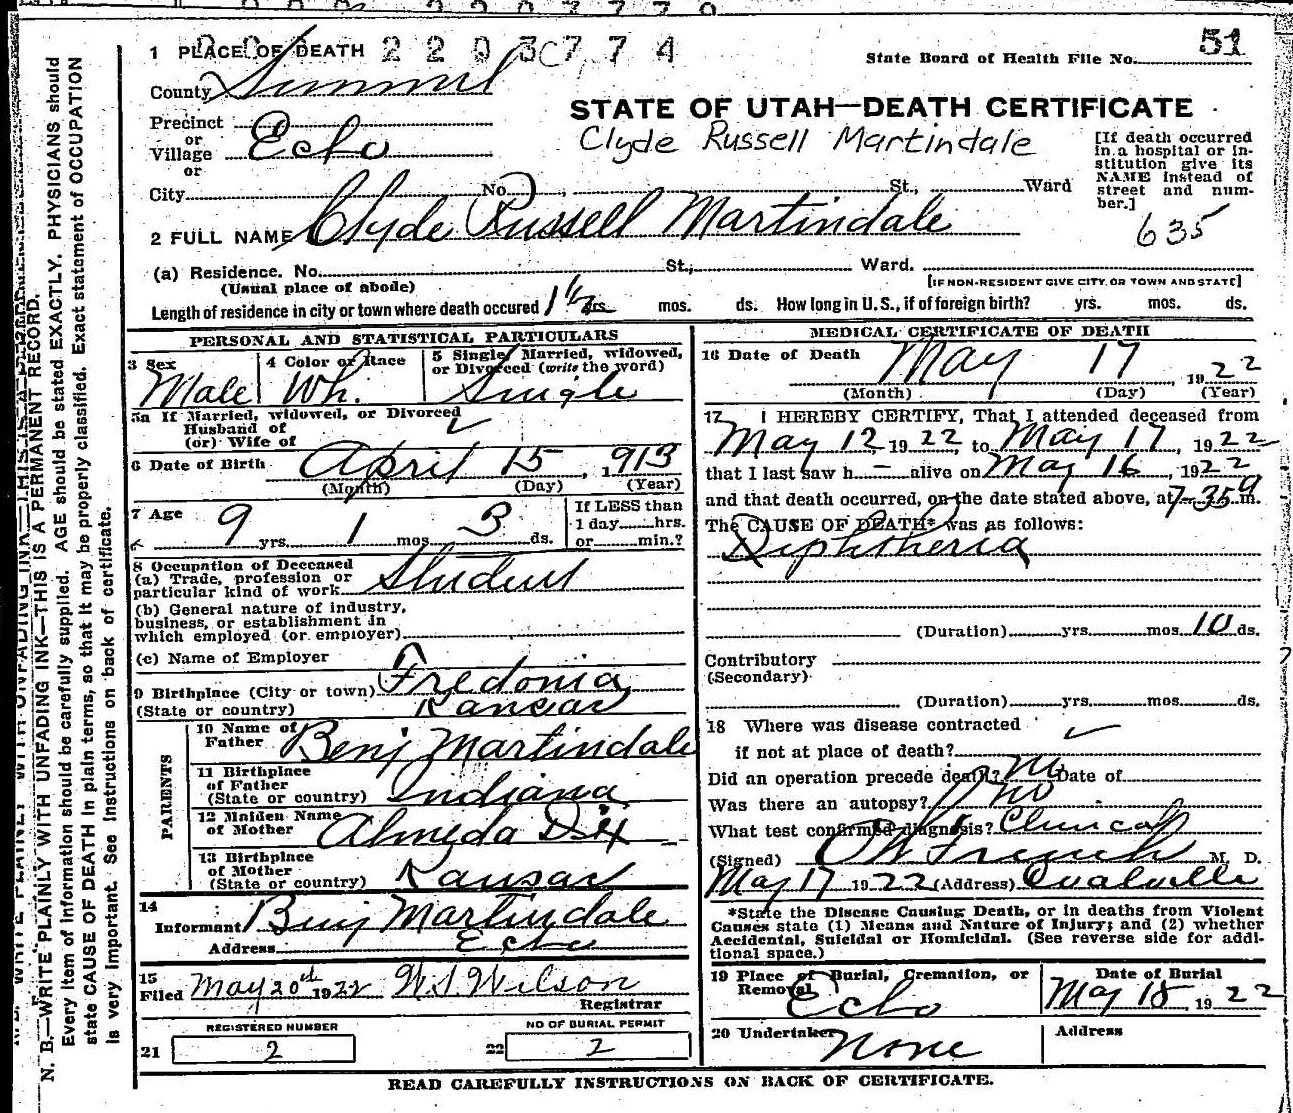 1 PLACE OF DEATH 2 2 0 3 C 7 7 4
State Board of Health File No. 51
County Summit
STATE OF UTAH—DEATH CERTIFICATE
Clyde Russell Martindale
Precinct
or
Village Echo
or
[If death occurred
in a hospital or in-
stitution give its
NAME instead of
street and num-
ber.]
City No. St., Ward
635
2 FULL NAME Clyde Russell Martindale
(a) Residence. No. St., Ward.
(Usual place of abode)
[IF NON-RESIDENT GIVE CITY OR TOWN AND STATE]
Length of residence in city or town where death occured 1 1/2 yrs mos. ds. How long in U.S., if of foreign birth? yrs. mos. ds.
PERSONAL AND STATISTICAL PARTICULARS
3 Sex
Male
4 Color or Race
Wh.
5 Single, Married, widowed,
or Divorced (write the word)
Single
5a If Married, widowed, or Divorced
Husband of
(or) Wife of
6 Date of Birth April 15, 1913
(Month) (Day) (Year)
7 Age 9 yrs. 1 mos. 3 ds.
If LESS than
1 day hrs.
or min.?
8 Occupation of Deceased
(a) Trade, profession or
particular kind of work Student
(b) General nature of industry,
business, or establishment in
which employed (or employer)
(c) Name of Employer
9 Birthplace (City or town) Fredonia
(State or country) Kansas
PARENTS
10 Name of
Father Benj Martindale
11 Birthplace
of Father
(State or country) Indiana
12 Maiden Name
of Mother Almeda Dix
13 Birthplace
of Mother
(State or country) Kansas
14
Informant Benj Martindale
Address Echo
15
Filed May 20th 1922 W.S. Wilson
Registrar
REGISTERED NUMBER
21 2
NO OF BURIAL PERMIT
22 2
MEDICAL CERTIFICATE OF DEATH
16 Date of Death May 17, 1922
(Month) (Day) (Year)
17 I HEREBY CERTIFY, That I attended deceased from
May 12, 1922, to May 17, 1922
that I last saw h — alive on May 16, 1922
and that death occurred, on the date stated above, at 7-35 a m.
The CAUSE OF DEATH* was as follows:
Diphtheria
(Duration) yrs. mos. 10 ds.
Contributory
(Secondary)
(Duration) yrs. mos. ds.
18 Where was disease contracted
if not at place of death?
Did an operation precede death? no Date of
Was there an autopsy? no
What test confirmed diagnosis? Clinical
(Signed) French M. D.
May 17 1922 (Address) Coalville
*State the Disease Causing Death, or in deaths from Violent
Causes state (1) Means and Nature of Injury; and (2) whether
Accidental, Suicidal or Homicidal. (See reverse side for addi-
tional space.)
19 Place of Burial, Cremation, or
Removal Echo
Date of Burial
May 18, 1922
20 Undertaker None
Address
READ CAREFULLY INSTRUCTIONS ON BACK OF CERTIFICATE.
N. B.—WRITE PLAINLY WITH UNFADING INK—THIS IS A PERMANENT RECORD.
Every item of information should be carefully supplied. AGE should be stated EXACTLY. PHYSICIANS should
state CAUSE OF DEATH in plain terms, so that it may be properly classified. Exact statement of OCCUPATION
is very important. See instructions on back of certificate.